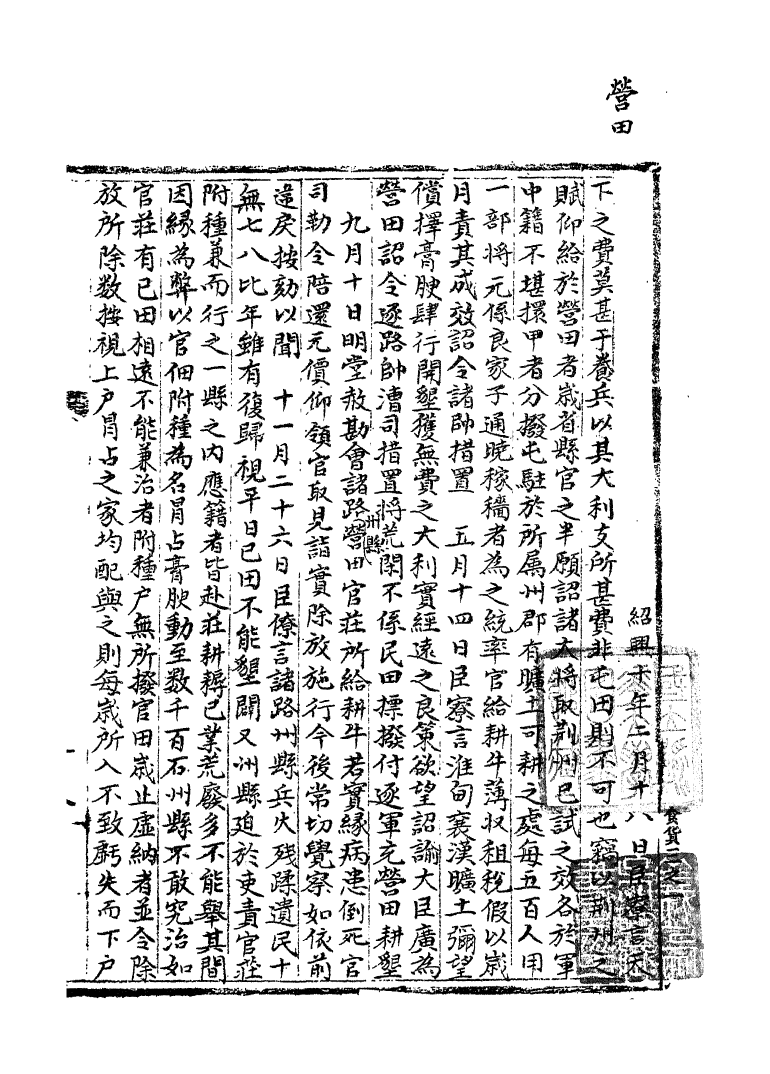 營田
紹興十年二月十八日臣寮言天
下之費莫甚于養兵以其大利支所甚費非屯田則不可也竊以荆州之
賦仰給於營田者歲省縣官之半願詔諸大將取荆州已試之效各於軍
中籍不堪擐甲者分撥屯駐於所属州郡有曠土可耕之處每五百人用
一部將元係良家子通曉稼穡者為之統率官給耕牛薄収租稅假以歲
月責其成效詔令諸帥措置 五月十四日臣寮言淮甸襄漢曠土彌望
償擇膏腴肆行開墾獲無費之大利實經遠之良策欲望詔諭大臣廣為
營田詔令逐路帥漕司措置將荒閑不係民田摽撥付逐軍充營田耕墾
九月十日明堂赦勘會諸路州縣營田官莊所給耕牛若實緣病患倒死官
司勒令陪還元價仰領官取見詣實除放施行今後常切覺察如依前
違戾按劾以聞 十一月二十六日臣僚言諸路州縣兵火殘蹂遺民十
無七八比年雖有復歸視平日已田不能墾闢又州縣迫於吏責官莊
附種兼而行之一縣之内應籍者皆赴莊耕耨已業荒廢多不能舉其間
因緣為弊以官佃附種為名冐占膏腴動至数千百石州縣不敢究治如
官莊有已田相遠不能兼治者附種户無所撥官田歲止虚納者並令除
放所除数按視上户冐占之家均配與之則每歲所入不致虧失而下户
食貨三之一